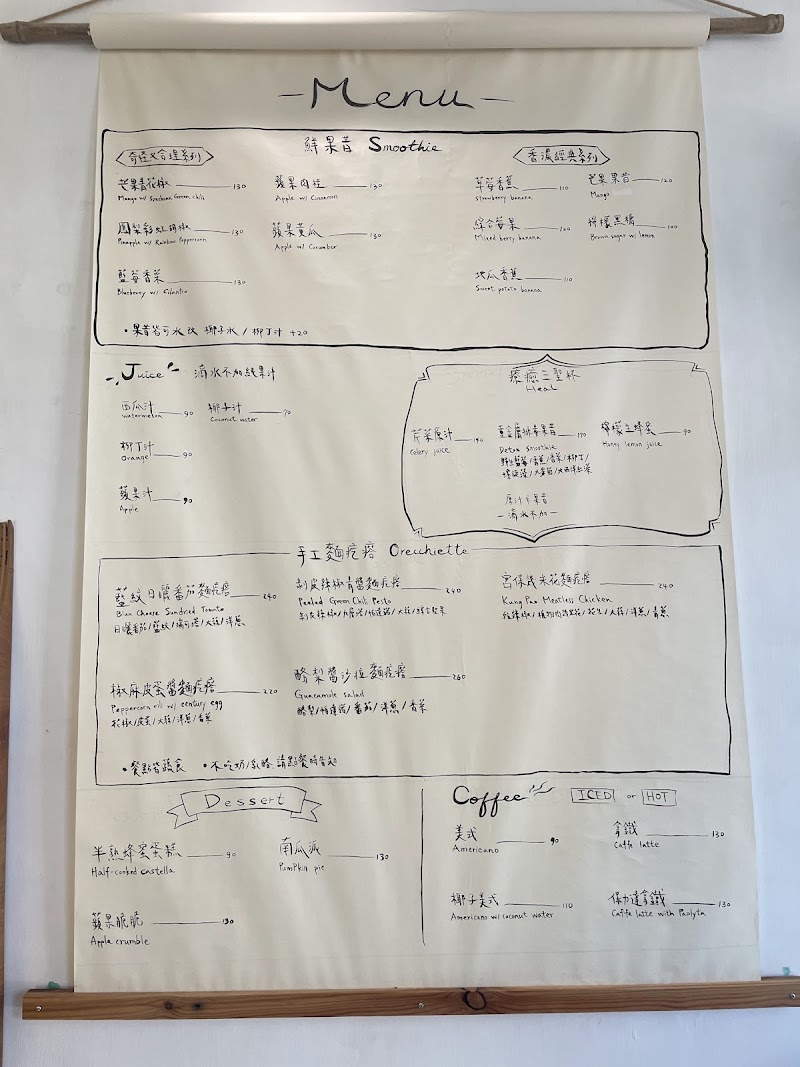 Menu
鮮果昔 Smoothie
奇怪又合理系列
芒果青花椒 130
Mango w/ Szechuan Green chili
鳳梨彩虹胡椒 130
Pineapple w/ Rainbow Peppercorn
藍莓香菜 130
Blueberry w/ Cilantro
蘋果肉桂 130
Apple w/ Cinnamon
蘋果黃瓜 130
Apple w/ Cucumber
香濃經典系列
草莓香蕉 110
Strawberry banana
綜合莓果 120
Mixed berry banana
地瓜香蕉 110
Sweet potato banana
芒果果昔 120
Mango
檸檬黑糖 100
Brown sugar w/ lemon
• 果昔皆可水改 椰子水 / 柳丁汁 +20
Juice 滴水不加純果汁
西瓜汁 90
watermelon
椰子汁 70
Coconut water
柳丁汁
Orange 90
蘋果汁 90
Apple
療癒三聖杯
Heal
芹菜原汁 190
Celery juice
重金屬排毒果昔 170
Detox smoothie
野生藍莓/香蕉/香菜/柳丁/
檸檬蜂蜜 90
Honey lemon juice
原汁&果昔
- 滴水不加 -
手工麵疙瘩 Orecchiette
藍紋日曬番茄麵疙瘩 240
Blue Cheese Sundried Tomato
日曬番茄/藍紋/瑞可塔/大蒜/洋蔥
剝皮辣椒青醬麵疙瘩 240
Pealed Green Chili Pesto
宮保炸米花麵疙瘩 240
Kung Pao Meatless Chicken
椒麻皮蛋醬麵疙瘩 220
Peppercorn oil w/ century egg
花椒/皮蛋/大蒜/洋蔥/香菜
酪梨醬沙拉麵疙瘩 260
Guacamole salad
酪梨/帕達諾/番茄/洋蔥/香菜
• 餐點皆蔬食 • 不吃奶/乳酪 請點餐時告知
Dessert
半熟蜂蜜蛋糕 90
Half-cooked castella
南瓜派 130
Pumpkin pie
蘋果脆脆 130
Apple crumble
Coffee ICED or HOT
美式 90
Americano
拿鐵 130
Caffe latte
椰子美式 110
Americano w/ coconut water
保力達拿鐵 130
Caffe latte with Paolyta